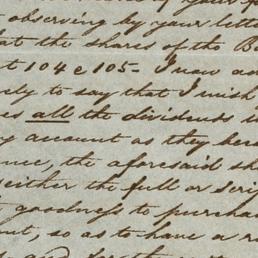 of your
observing by your lette
at the shares of the B
t 104 @ 105 - I now ad
ely to say that I wish
es all the dividends
y account as they bec
nce, the aforesaid sh
either the full or scri
goodness to purcha
unt, so as to have a r